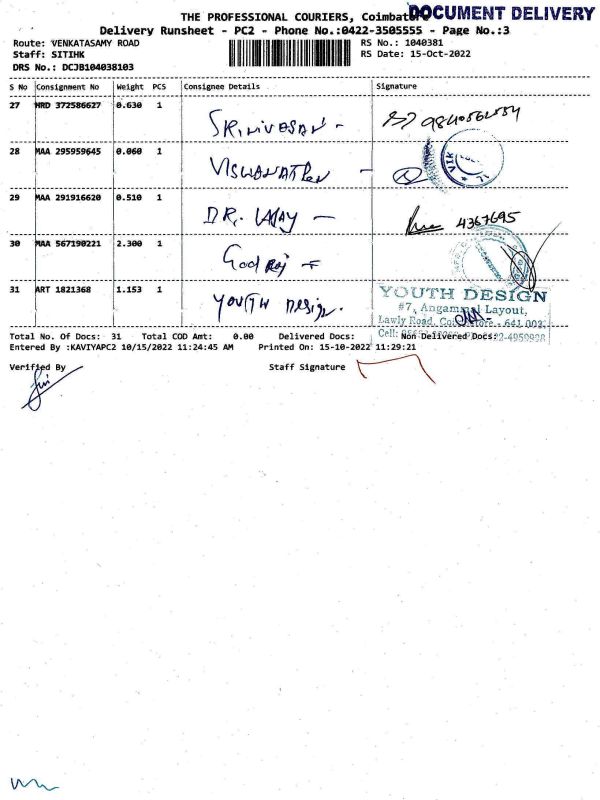 THE PROFESSIONAL COURIERS, Coimbatore
DOCUMENT DELIVERY
Delivery Runsheet - PC2 - Phone No.:0422-3505555 - Page No.:3
Route: VENKATASAMY ROAD
RS No.: 1040381
Staff: SITIHK
RS Date: 15-Oct-2022
DRS No.: DCJB104038103
S No Consignment No Weight PCS Consignee Details Signature
27 MRD 372586627 0.630 1 SRINIVASAN -
28 MAA 295959645 0.060 1 VISWANATHAN -
29 MAA 291916620 0.510 1 DR. VIJAY - 4367695
30 MAA 567190221 2.300 1
31 ART 1821368 1.153 1 YOUTH Design.
YOUTH DESIGN
#7, Angammal Layout,
Lawly Road, Coimbatore - 641 003.
Cell:
Total No. Of Docs: 31 Total COD Amt: 0.00 Delivered Docs: Non Delivered Docs:
Entered By :KAVIYAPC2 10/15/2022 11:24:45 AM Printed On: 15-10-2022 11:29:21
Verified By Staff Signature